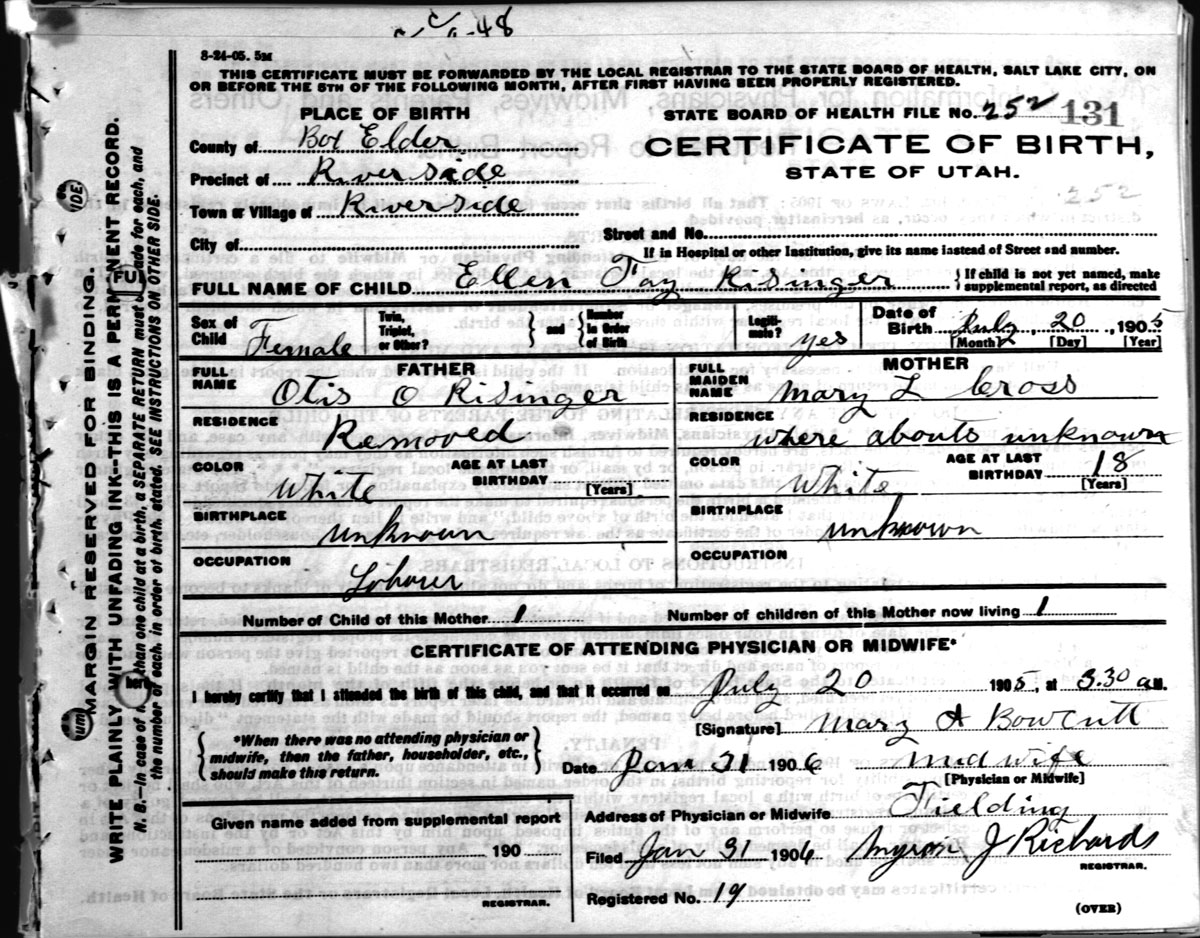 48
8-24-05. 5M
THIS CERTIFICATE MUST BE FORWARDED BY THE LOCAL REGISTRAR TO THE STATE BOARD OF HEALTH, SALT LAKE CITY, ON
OR BEFORE THE 5TH OF THE FOLLOWING MONTH, AFTER FIRST HAVING BEEN PROPERLY REGISTERED.
PLACE OF BIRTH
STATE BOARD OF HEALTH FILE No. 252 131
County of Box Elder
CERTIFICATE OF BIRTH,
STATE OF UTAH.
Precinct of Riverside
252
Town or Village of Riverside
City of
Street and No.
If in Hospital or other Institution, give its name instead of Street and number.
FULL NAME OF CHILD Ellen Fay Risinger { If child is not yet named, make
supplemental report, as directed
Sex of Child Female
Twin, Triplet, or Other? } and { Number in Order of Birth
Legiti- mate? yes
Date of Birth July 20, 1905
[Month] [Day] [Year]
FATHER
FULL NAME Otis O Risinger
RESIDENCE Removed
COLOR White
AGE AT LAST BIRTHDAY [Years]
BIRTHPLACE unknown
OCCUPATION Labour
MOTHER
FULL MAIDEN NAME Mary L Cross
RESIDENCE where abouts unknown
COLOR White
AGE AT LAST BIRTHDAY 18 [Years]
BIRTHPLACE unknown
OCCUPATION
Number of Child of this Mother 1 Number of children of this Mother now living 1
CERTIFICATE OF ATTENDING PHYSICIAN OR MIDWIFE*
I hereby certify that I attended the birth of this child, and that it occurred on July 20 1905, at 3.30 a.M.
[Signature] Mary A Bowcutt
{ *When there was no attending physician or
midwife, then the father, householder, etc.,
should make this return. }
Date Jan 31 1906 Mid wife
[Physician or Midwife]
Given name added from supplemental report
190
REGISTRAR.
Address of Physician or Midwife Fielding
Filed Jan 31 1906 Myron J Richards
REGISTRAR.
Registered No. 19
(OVER)
MARGIN RESERVED FOR BINDING.
WRITE PLAINLY WITH UNFADING INK--THIS IS A PERMANENT RECORD.
N. B.--In case of more than one child at a birth, a SEPARATE RETURN must be made for each, and
the number of each, in order of birth, stated. SEE INSTRUCTIONS ON OTHER SIDE.